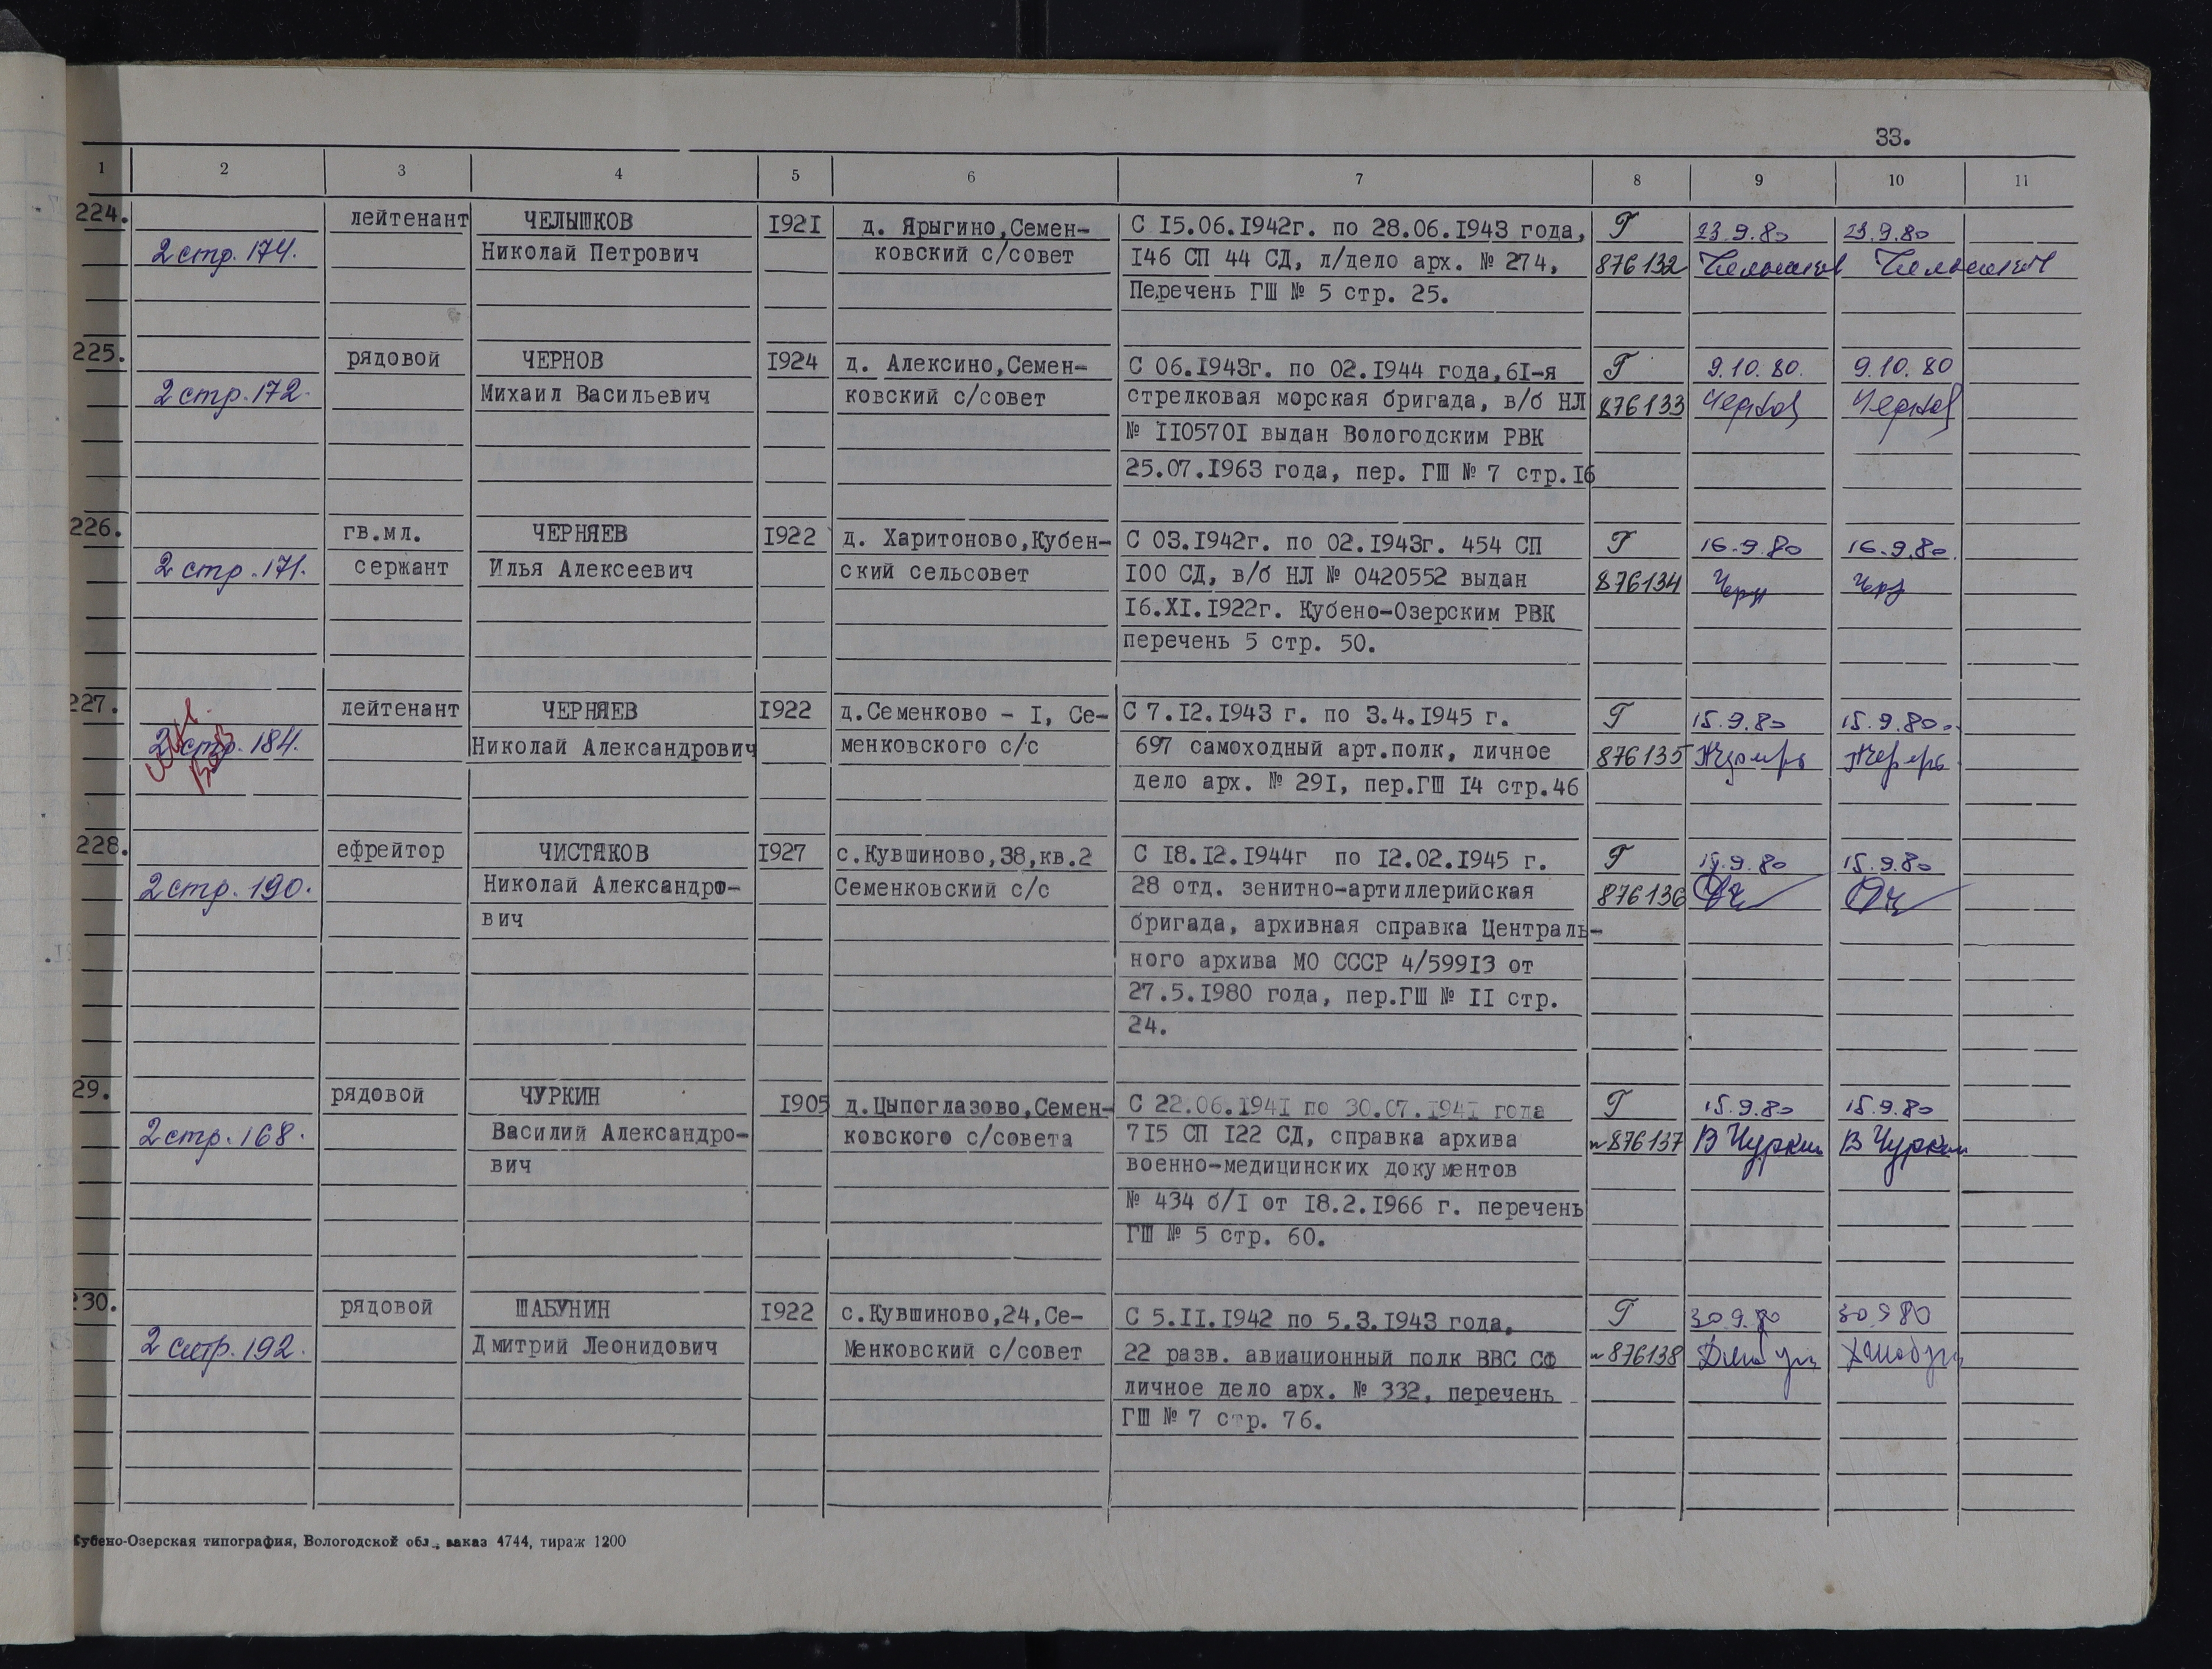 33.
1 2 3 4 5 6 7 8 9 10 11
224. лейтенант ЧЕЛЫШКОВ 1921 д. Ярыгино,Семен- С 15.06.1942г. по 28.06.1943 года, Г 23.9.80 23.9.80
2 стр. 174. Николай Петрович ковский с/совет 146 СП 44 СД, л/дело арх. № 274, 876132
Перечень ГШ № 5 стр. 25.
225. рядовой ЧЕРНОВ 1924 д. Алексино,Семен- С 06.1943г. по 02.1944 года,61-я Г 9.10.80. 9.10.80
2 стр. 172. Михаил Васильевич ковский с/совет стрелковая морская бригада, в/б НЛ 876133
№ 1105701 выдан Вологодским РВК
25.07.1963 года, пер. ГШ № 7 стр.16
226. гв.мл. ЧЕРНЯЕВ 1922 д. Харитоново,Кубен- С 03.1942г. по 02.1943г. 454 СП Г 16.9.80 16.9.80.
2 стр. 171. сержант Илья Алексеевич ский сельсовет 100 СД, в/б НЛ № 0420552 выдан 876134
16.XI.1922г. Кубено-Озерским РВК
перечень 5 стр. 50.
227. лейтенант ЧЕРНЯЕВ 1922 д.Семенково - I, Се- С 7.12.1943 г. по 3.4.1945 г. Г 15.9.80 15.9.80
2 стр. 184. Николай Александрович менковского с/с 697 самоходный арт.полк, личное 876135
дело арх. № 291, пер.ГШ 14 стр.46
228. ефрейтор ЧИСТЯКОВ 1927 с.Кувшиново,38,кв.2 С 18.12.1944г по 12.02.1945 г. Г 15.9.80 15.9.80
2 стр. 190. Николай Александро- Семенковский с/с 28 отд. зенитно-артиллерийская 876136
вич бригада, архивная справка Централь-
ного архива МО СССР 4/59913 от
27.5.1980 года, пер.ГШ № II стр.
24.
29. рядовой ЧУРКИН 1905 д.Цыпоглазово,Семен- С 22.06.1941 по 30.07.1941 года Г 15.9.80 15.9.80
2 стр. 168. Василий Александро- ковского с/совета 715 СП 122 СД, справка архива 876137 В Чуркин В Чуркин
вич военно-медицинских документов
№ 434 б/I от 18.2.1966 г. перечень
ГШ № 5 стр. 60.
230. рядовой ШАБУНИН 1922 с.Кувшиново,24,Се- С 5.II.1942 по 5.3.1943 года, Г 30 9.80 30 9 80
2 стр. 192. Дмитрий Леонидович Менковский с/совет 22 разв. авиационный полк ВВС СФ 876138
личное дело арх. № 332, перечень
ГШ № 7 стр. 76.
Кубено-Озерская типография, Вологодской обл., заказ 4744, тираж 1200